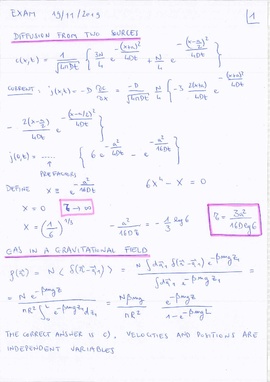 EXAM 19/11/2019 1
DIFFUSION FROM TWO SOURCES
c(x,t) = 1/√(4πDt) { 3N/4 e^{-(x+a)²/4Dt} + N/4 e^{-(x-a/2)²/4Dt}
CURRENT: j(x,t) = -D ∂c/∂x = -D/√(4πDt) N/4 { -3 2(x+a)/4Dt e^{-(x+a)²/4Dt}
- 2(x-a/2)/4Dt e^{-(x-a/2)²/4Dt} }
j(0,t) = ..... { 6 e^{-a²/4Dt} - e^{-a²/16Dt} }
PREFACTORS
DEFINE X ≡ e^{-a²/16Dt} 6X⁴ - X = 0
X = 0 τ → ∞
X = (1/6)^{1/3} -a²/16Dτ = -1/3 log 6 τ = 3a²/16D log 6
GAS IN A GRAVITATIONAL FIELD
ρ(r⃗) = N < δ(r⃗-r⃗₁) > = N ∫dr⃗₁ δ(r⃗-r⃗₁) e^{-βmgz₁} / ∫dr⃗₁ e^{-βmgz₁} =
= N e^{-βmgz} / πR² ∫₀^L e^{-βmgz₁} dz₁ = Nβmg/πR² e^{-βmgz}/1-e^{-βmgL}
THE CORRECT ANSWER IS c), VELOCITIES AND POSITIONS ARE
INDEPENDENT VARIABLES